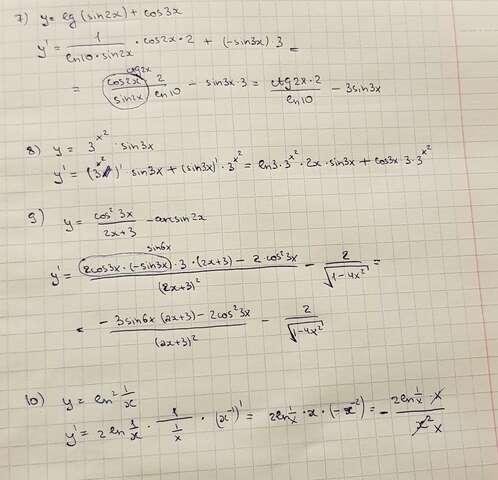 7) y = lg (sin2x) + cos3x
y' = 1/(ln10 · sin2x) · cos2x · 2 + (-sin3x) 3 =
ctg2x
= cos2x/sin2x · 2/ln10 - sin3x · 3 = ctg2x · 2/ln10 - 3sin3x
8) y = 3^x² · sin3x
y' = (3^x²)' sin3x + (sin3x)' · 3^x² = ln3 · 3^x² · 2x · sin3x + cos3x · 3 · 3^x²
9) y = cos²3x/(2x+3) - arcsin2x
sin6x
y' = (2cos3x · (-sin3x) · 3 · (2x+3) - 2 cos²3x)/(2x+3)² - 2/√(1-4x²) =
= (-3sin6x (2x+3) - 2cos²3x)/(2x+3)² - 2/√(1-4x²)
10) y = ln² 1/x
y' = 2 ln 1/x · 1/(1/x) · (x⁻¹)' = 2ln 1/x · x · (-x⁻²) = - (2ln 1/x · x)/x² x